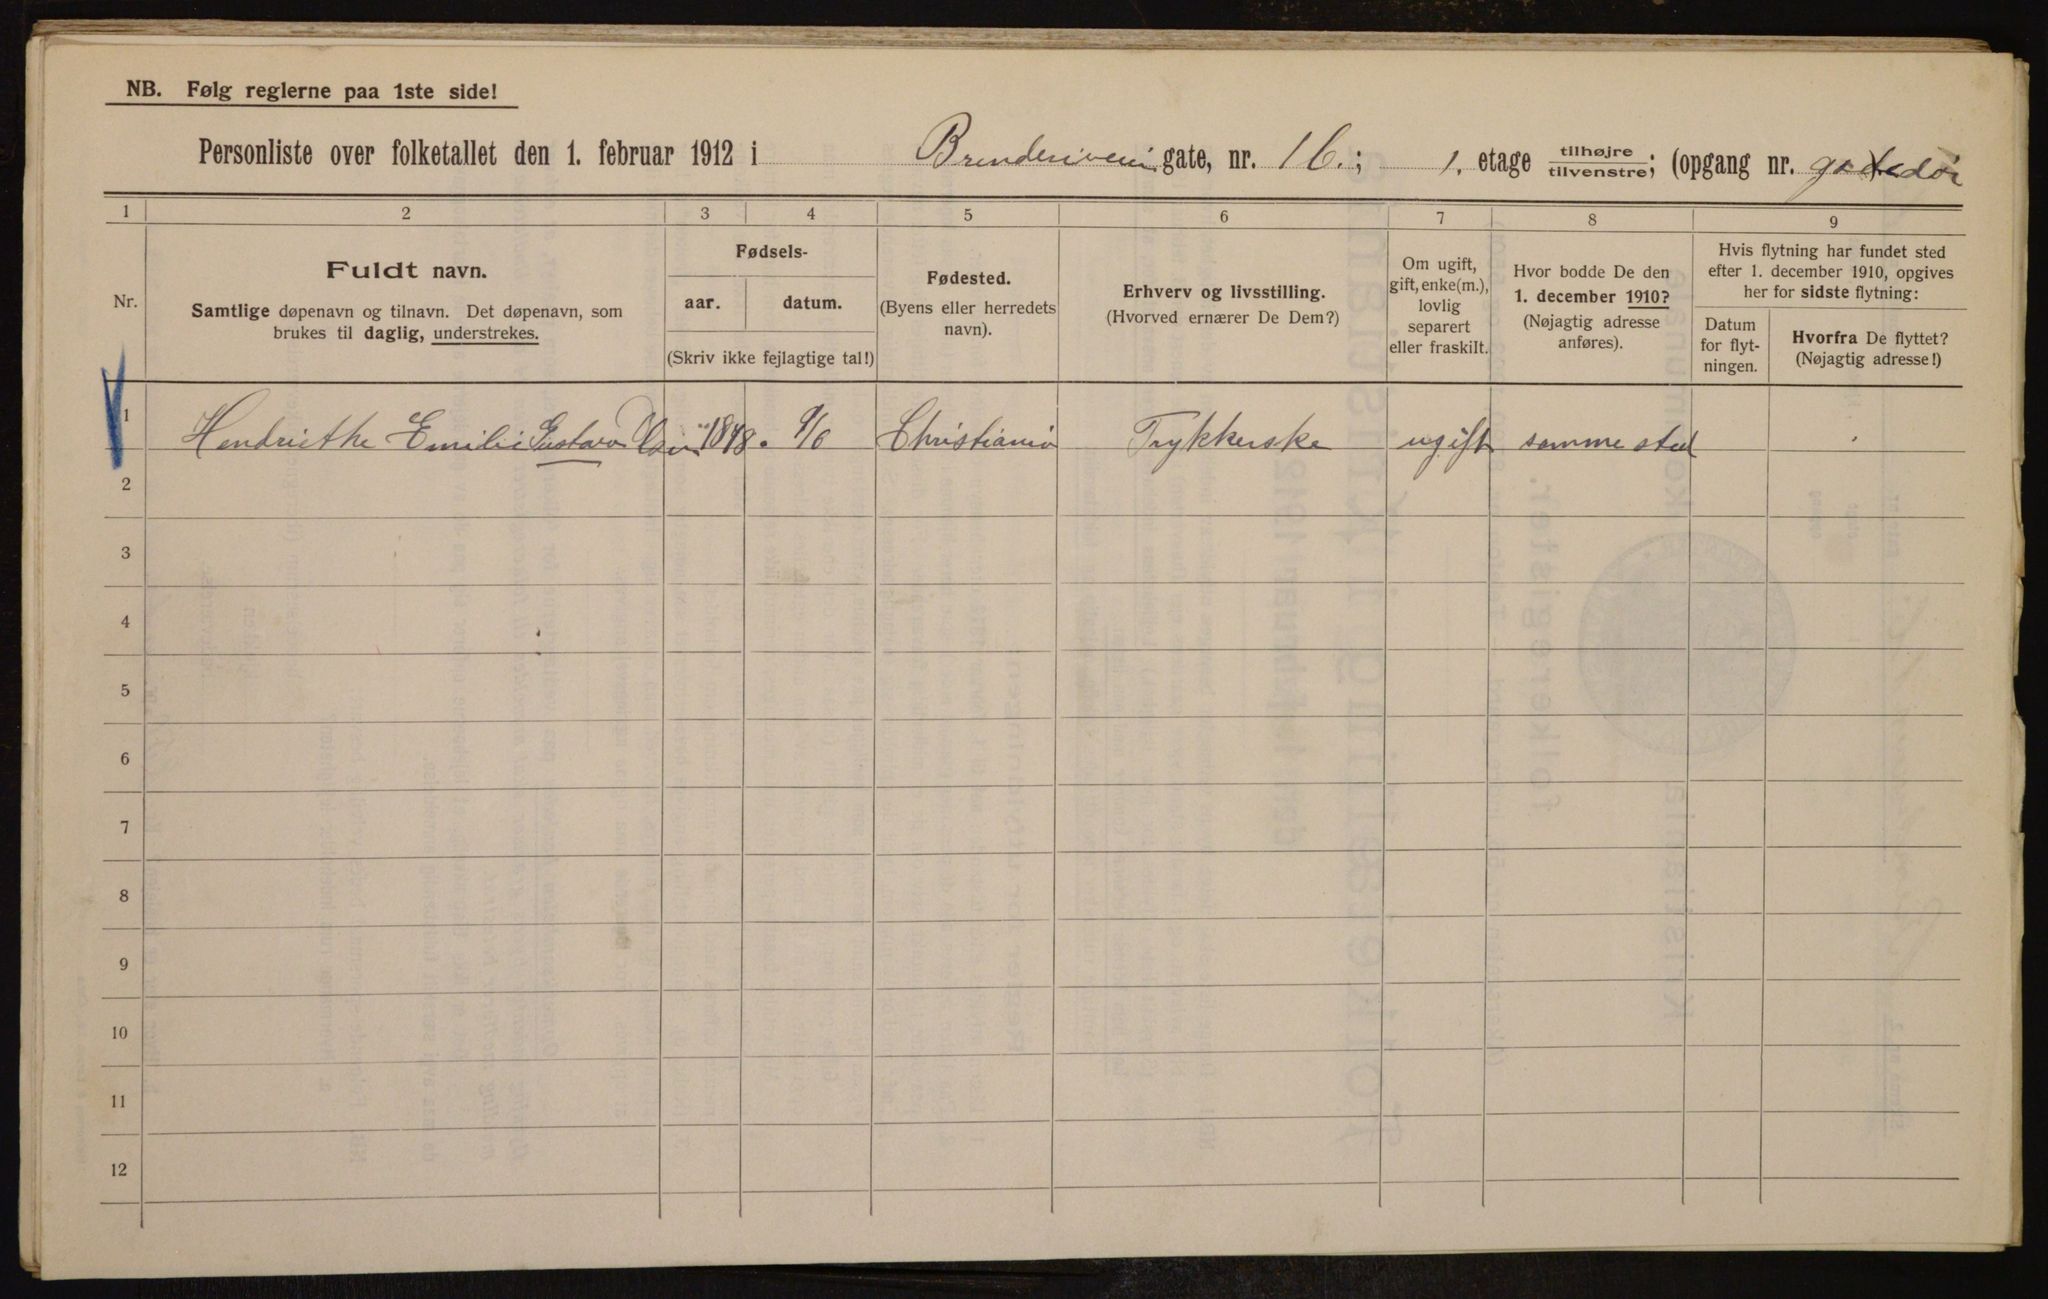 NB. Følg reglerne paa 1ste side!
Personliste over folketallet den 1. februar 1912 i Brenneriveien gate, nr. 16.; 1. etage tilhøjre tilvenstre; (opgang nr. gadedør
1 2 3 4 5 6 7 8 9
Nr.
Fuldt navn.
Samtlige døpenavn og tilnavn. Det døpenavn, som
brukes til daglig, understrekes.
Fødsels-
aar. datum.
(Skriv ikke fejlagtige tal!)
Fødested.
(Byens eller herredets
navn).
Erhverv og livsstilling.
(Hvorved ernærer De Dem?)
Om ugift,
gift, enke(m.),
lovlig
separert
eller fraskilt.
Hvor bodde De den
1. december 1910?
(Nøjagtig adresse
anføres).
Hvis flytning har fundet sted
efter 1. december 1910, opgives
her for sidste flytning:
Datum
for flyt-
ningen.
Hvorfra De flyttet?
(Nøjagtig adresse!)
1 Hendriethe Emilie 1848. 9/6 Christiania Trykkerske ugift samme sted
2
3
4
5
6
7
8
9
10
11
12